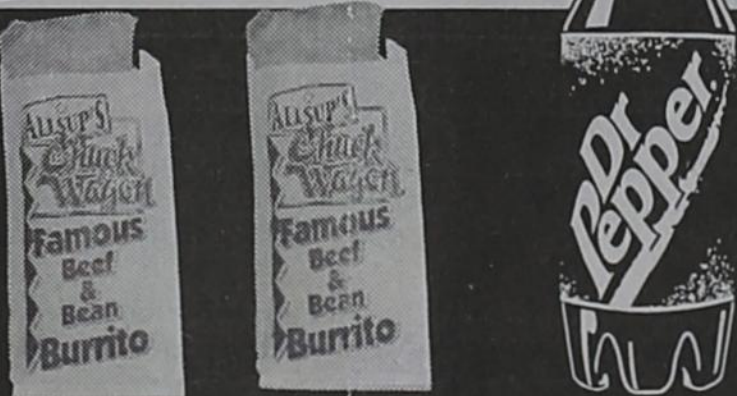 ALLSUP'S
Chuck
Wagon
Famous
Beef
&
Bean
Burrito
ALLSUP'S
Chuck
Wagon
Famous
Beef
&
Bean
Burrito
Dr
Pepper.